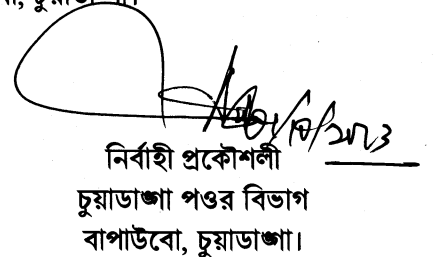 নির্বাহী প্রকৌশলী
চুয়াডাঙ্গা পওর বিভাগ
বাপাউবো, চুয়াডাঙ্গা।